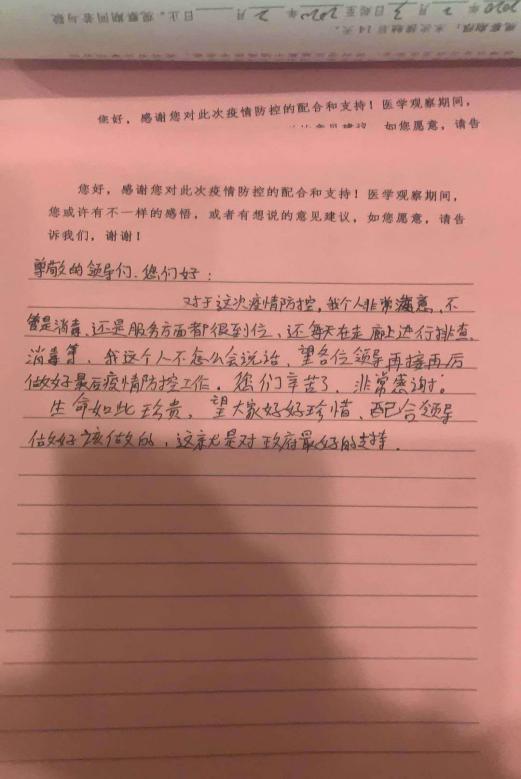 2020年 2 月 3 日起至 2020年 2 月 日止。观察期间若与疑
观察期限：末次接触后14天。
您好，感谢您对此次疫情防控的配合和支持！医学观察期间，
意见建议，如您愿意，请告
您好，感谢您对此次疫情防控的配合和支持！医学观察期间，
您或许有不一样的感悟，或者有想说的意见建议，如您愿意，请告
诉我们，谢谢！
尊敬的领导们、您们好：
对于这次疫情防控，我个人非常满意，不
管是消毒、还是服务方面都很到位、还每天在走廊上进行排查、
消毒等、我这个人不怎么会说话、望各位领导再接再厉
做好最后疫情防控工作。您们辛苦了、非常感谢！
生命如此珍贵，望大家好好珍惜、配合领导
做好该做的，这就是对政府最好的支持．